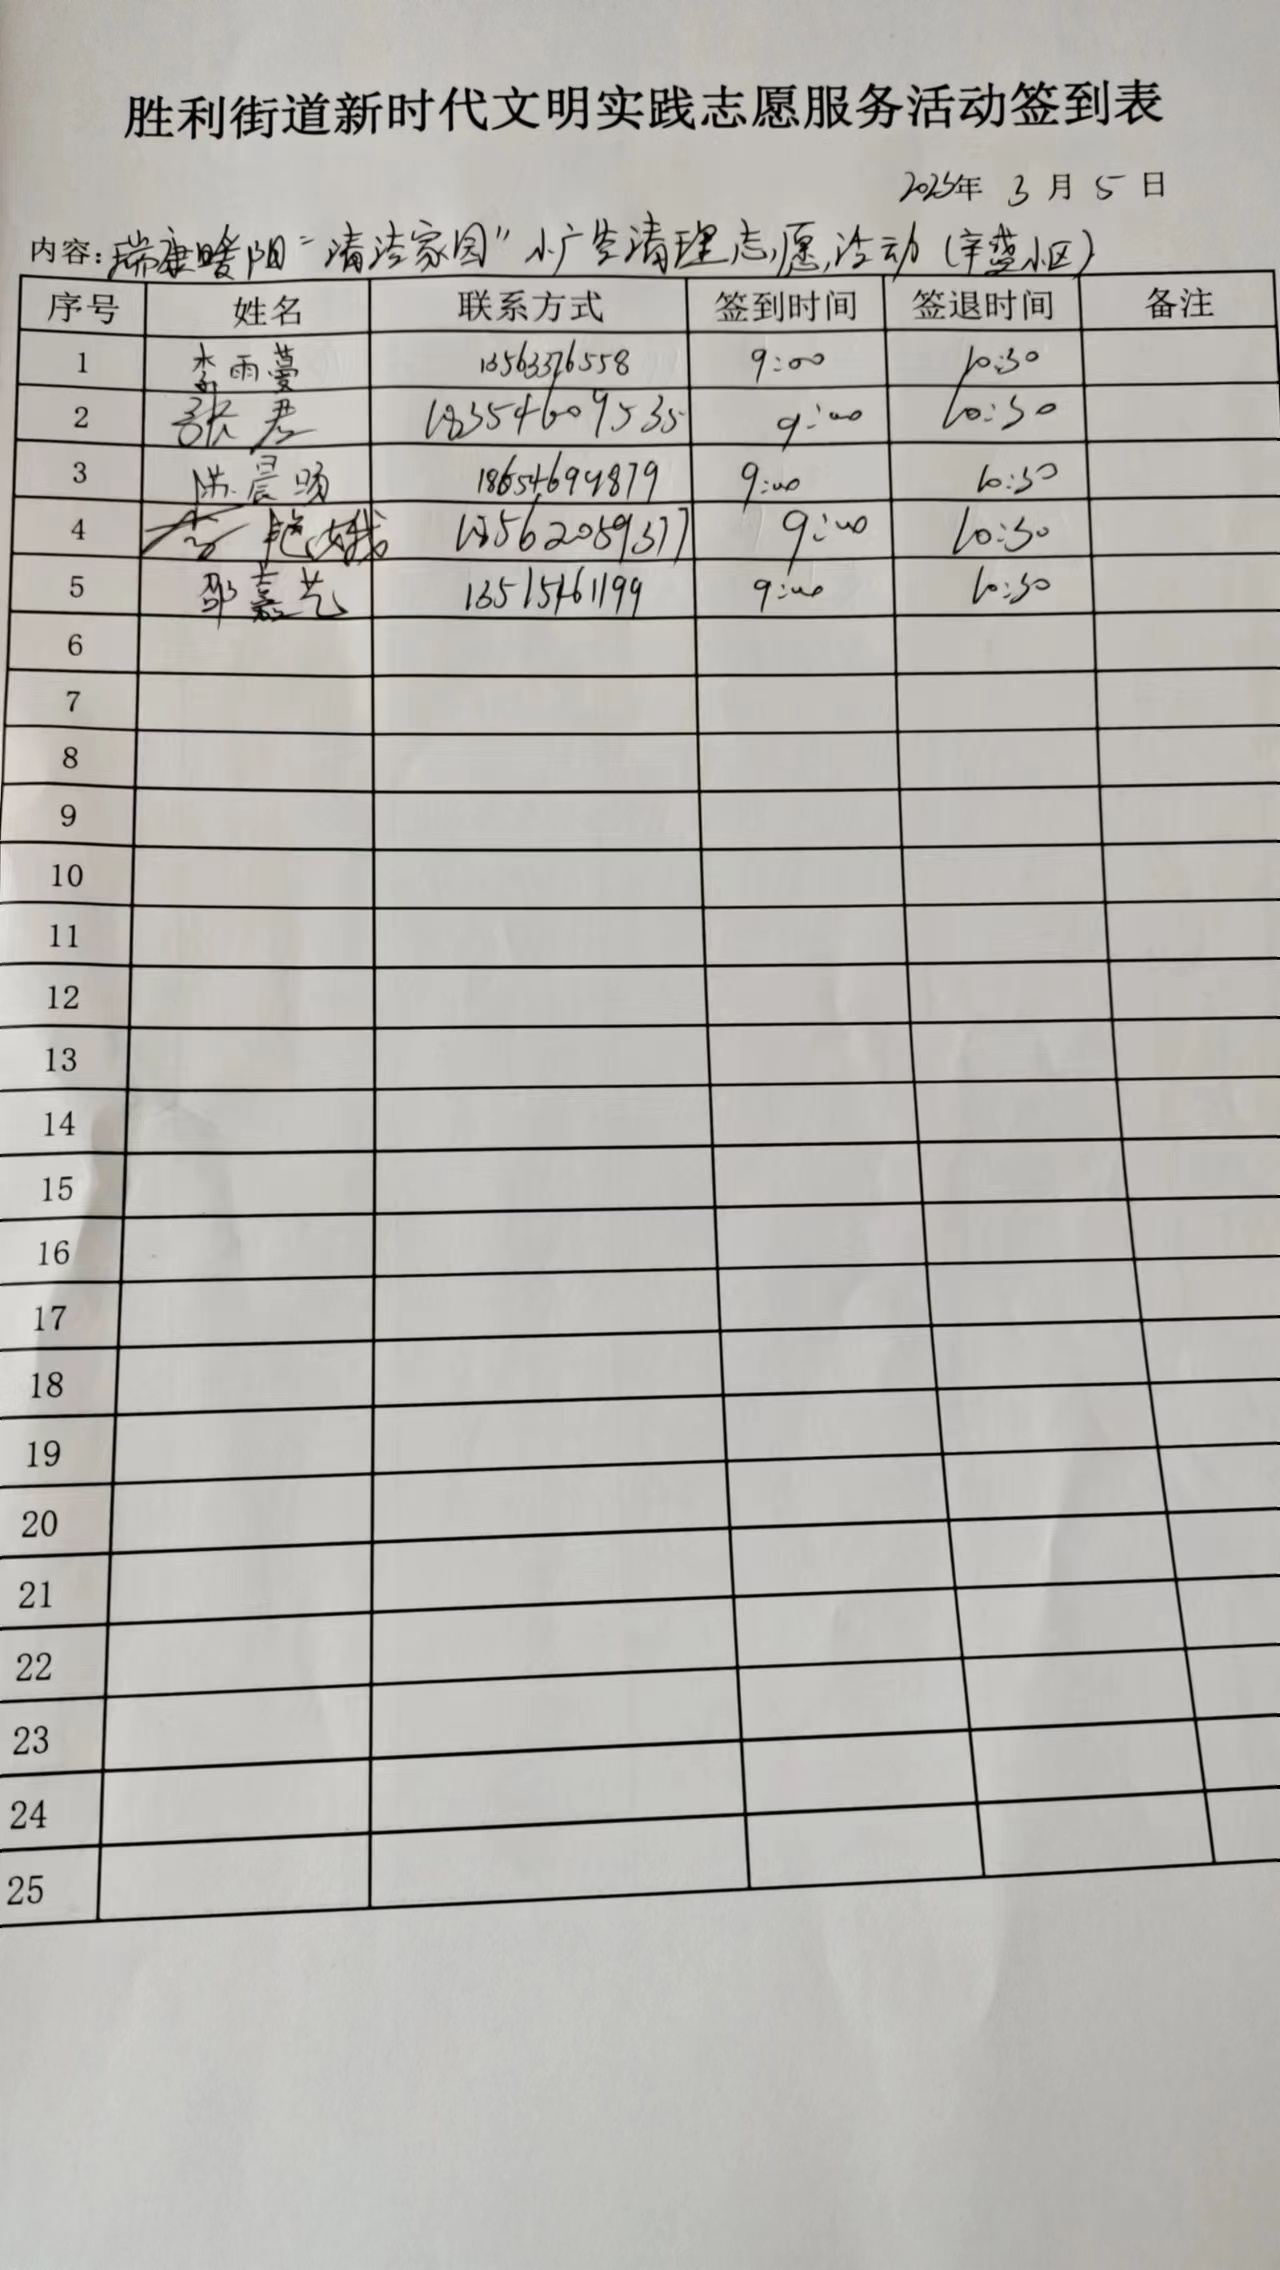 胜利街道新时代文明实践志愿服务活动签到表
2025年 3 月 5 日
内容:瑞康暖阳“清洁家园”小广告清理志愿活动(辛盛小区)
序号 姓名 联系方式 签到时间 签退时间 备注
1 李雨蔓 13563376558 9:00 10:30
2 张君 18354609535 9:00 10:30
3 晨 18654694879 9:00 10:30
4 李艳娥 13562059377 9:00 10:30
5 邵嘉艺 13515461199 9:00 10:30
6
7
8
9
10
11
12
13
14
15
16
17
18
19
20
21
22
23
24
25